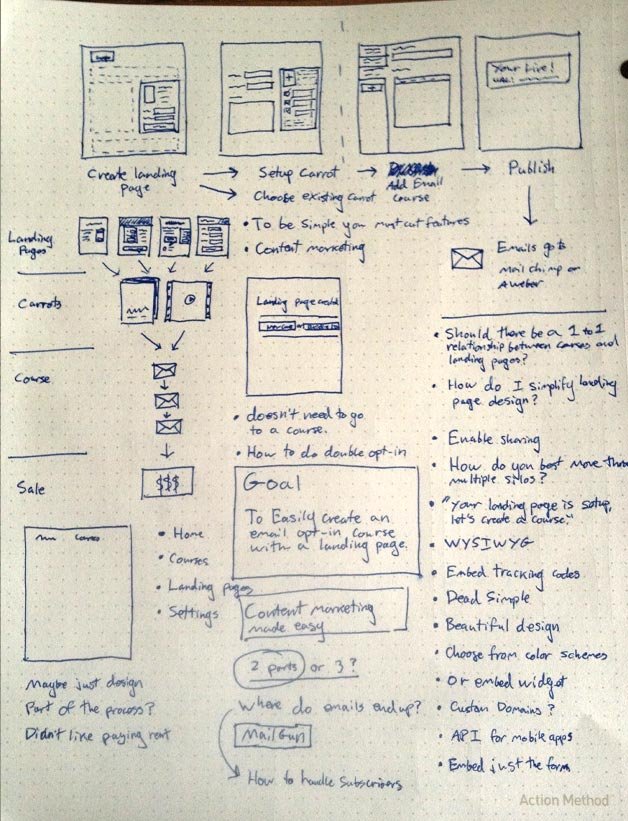 Logo
Your Live!
URL:
Create landing page
Setup Carrot
Choose existing carrot
Add Email Course
Publish
Landing Pages
• To be simple you must cut features
• Content marketing
Emails go to
Mail chimp or
Aweber
Carrots
Landing page created
or
Course
• doesn't need to go
to a course.
• How to do double opt-in
Sale
$$$
Goal
To Easily create an
email opt-in course
with a landing page.
Content marketing
made easy
2 parts or 3?
Where do emails end up?
MailGun
How to handle Subscribers
• Home
• Courses
• Landing pages
• Settings
Maybe just design
Part of the process?
Didn't like paying rent
• Should there be a 1 to 1
relationship between and
landing pages?
• How do I simplify landing
page design?
• Enable sharing
• How do you best move
multiple silos?
• "Your landing page is setup,
let's create a course."
• WYSIWYG
• Embed tracking codes
• Dead Simple
• Beautiful design
• Choose from color schemes
• Or embed widget
• Custom Domains?
• API for mobile apps
• Embed just the form
Action Method